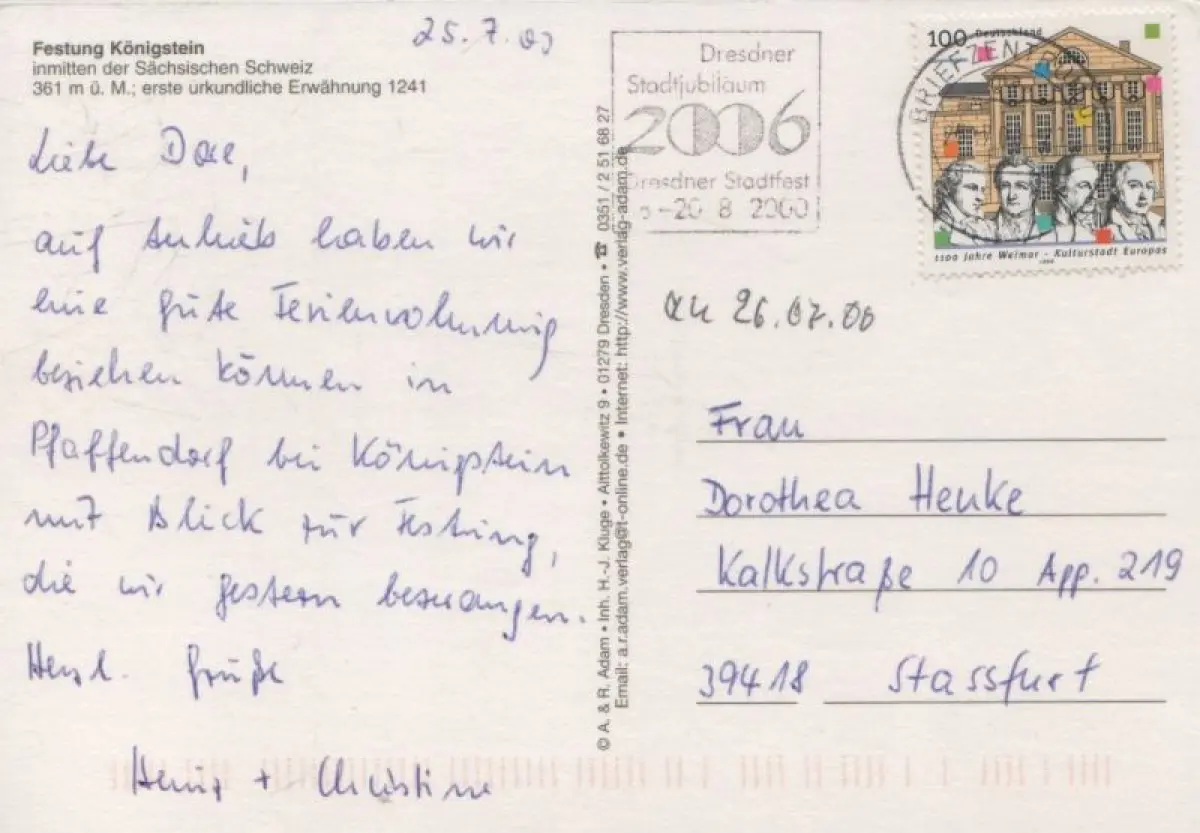 Festung Königstein
inmitten der Sächsischen Schweiz
361 m ü. M.; erste urkundliche Erwähnung 1241
25. 7. 00
Liebe Dore,
auf Anhieb haben wir
eine gute Ferienwohnung
beziehen können in
Pfaffendorf bei Königstein
mit Blick zur Festung,
die wir gestern bezwangen.
Herzl. Grüße
Heinz + Christine
© A. & R. Adam • Inh. H.-J. Kluge • Alttolkewitz 9 • 01279 Dresden • ☎ 0351 / 2 51 68 27
Email: a.r.adam.verlag@t-online.de • Internet: http://www.verlag-adam.de
Dresdner
Stadtjubiläum
2006
Dresdner Stadtfest
-20 8 2000
BRIEFZENTRUM
100 Deutschland
1100 Jahre Weimar - Kulturstadt Europas
1999
an 26.07.00
Frau
Dorothea Henke
Kalkstraße 10 App. 219
39418 Stassfurt